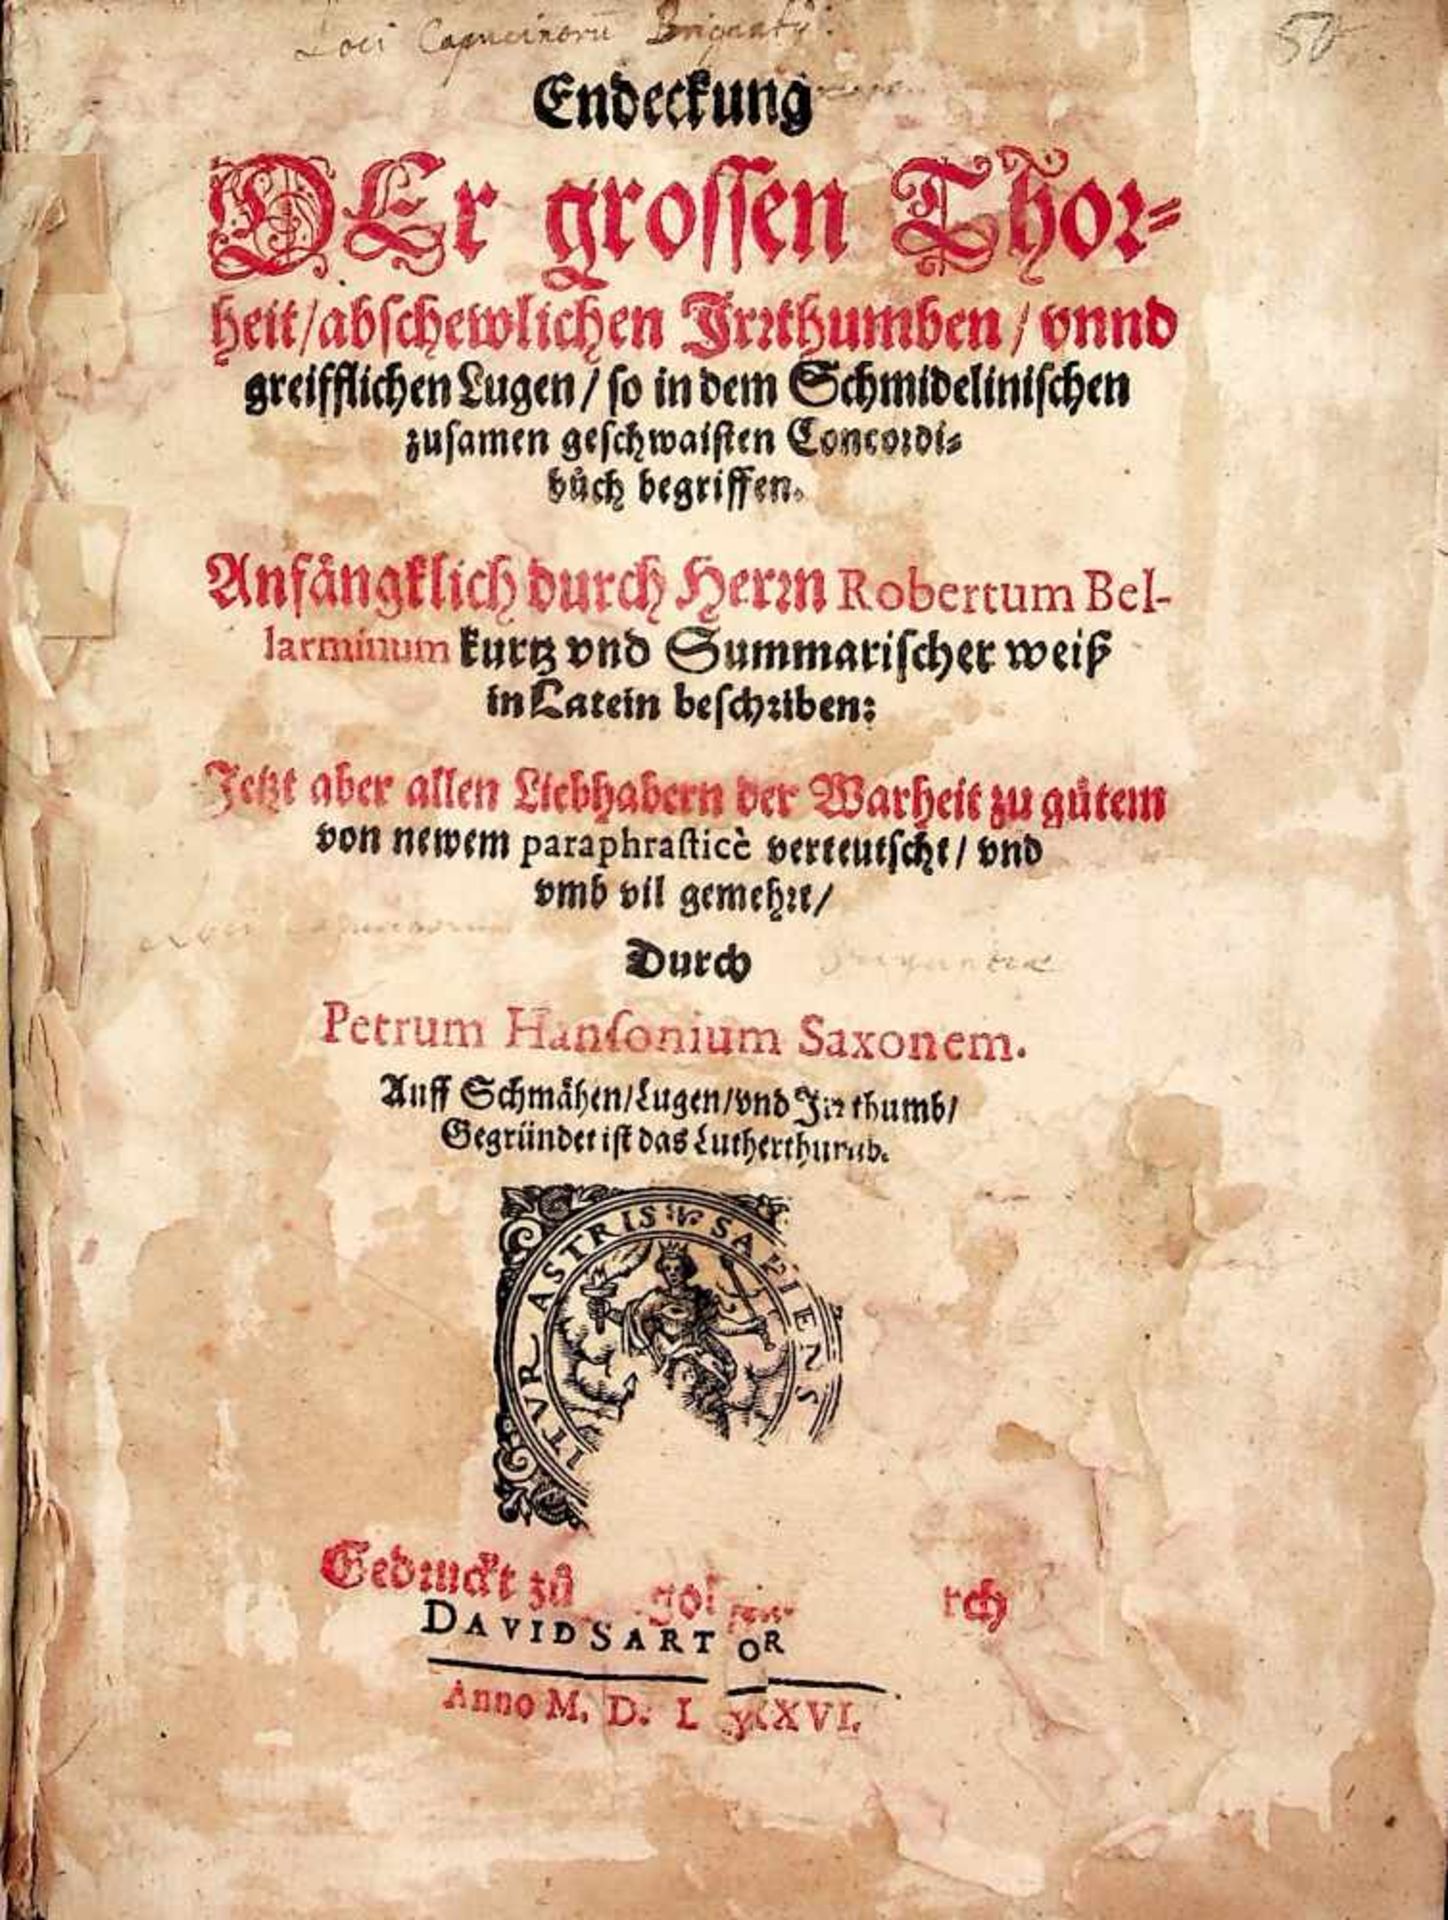 Loci Capucinorū
50
Endeckung
DEr grossen Thor-
heit/abschewlichen Irrthumben/vnnd
greifflichen Lugen/so in dem Schmidelinischen
zusamen geschwaisten Concordi-
bůch begriffen.
Anfängklich durch Herrn Robertum Bel-
larminum kurtz vnd Summarischer weiß
in Latein beschriben:
Jetzt aber allen Liebhabern der Warheit zu gůtem
von newem paraphrasticè verteutscht/vnd
vmb vil gemehrt/
Durch
Petrum Hansonium Saxonem.
Auff Schmähen/Lugen/vnd Irrthumb/
Gegründet ist das Lutherthumb.
ITVR ASTRIS SAPIENS
Gedruckt zů
DAVID SARTOR
Anno M. D. L XXVI.